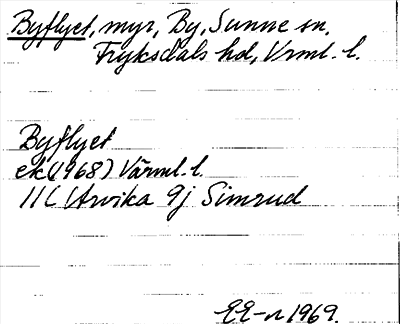 Byflyet, myr, By, Sunne sn,
Fryksdals hd, Vrml. l.
Byflyet
ek (1968) Värml. l.
11C Arvika 9j Simrud
EE-n 1969.